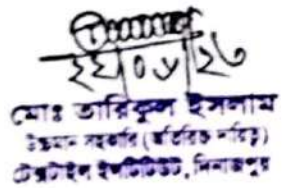 ২৪/০৮/২৩
মোঃ তারিকুল ইসলাম
উচ্চমান সহকারি (অতিরিক্ত দায়িত্ব)
টেক্সটাইল ইনস্টিটিউট, দিনাজপুর